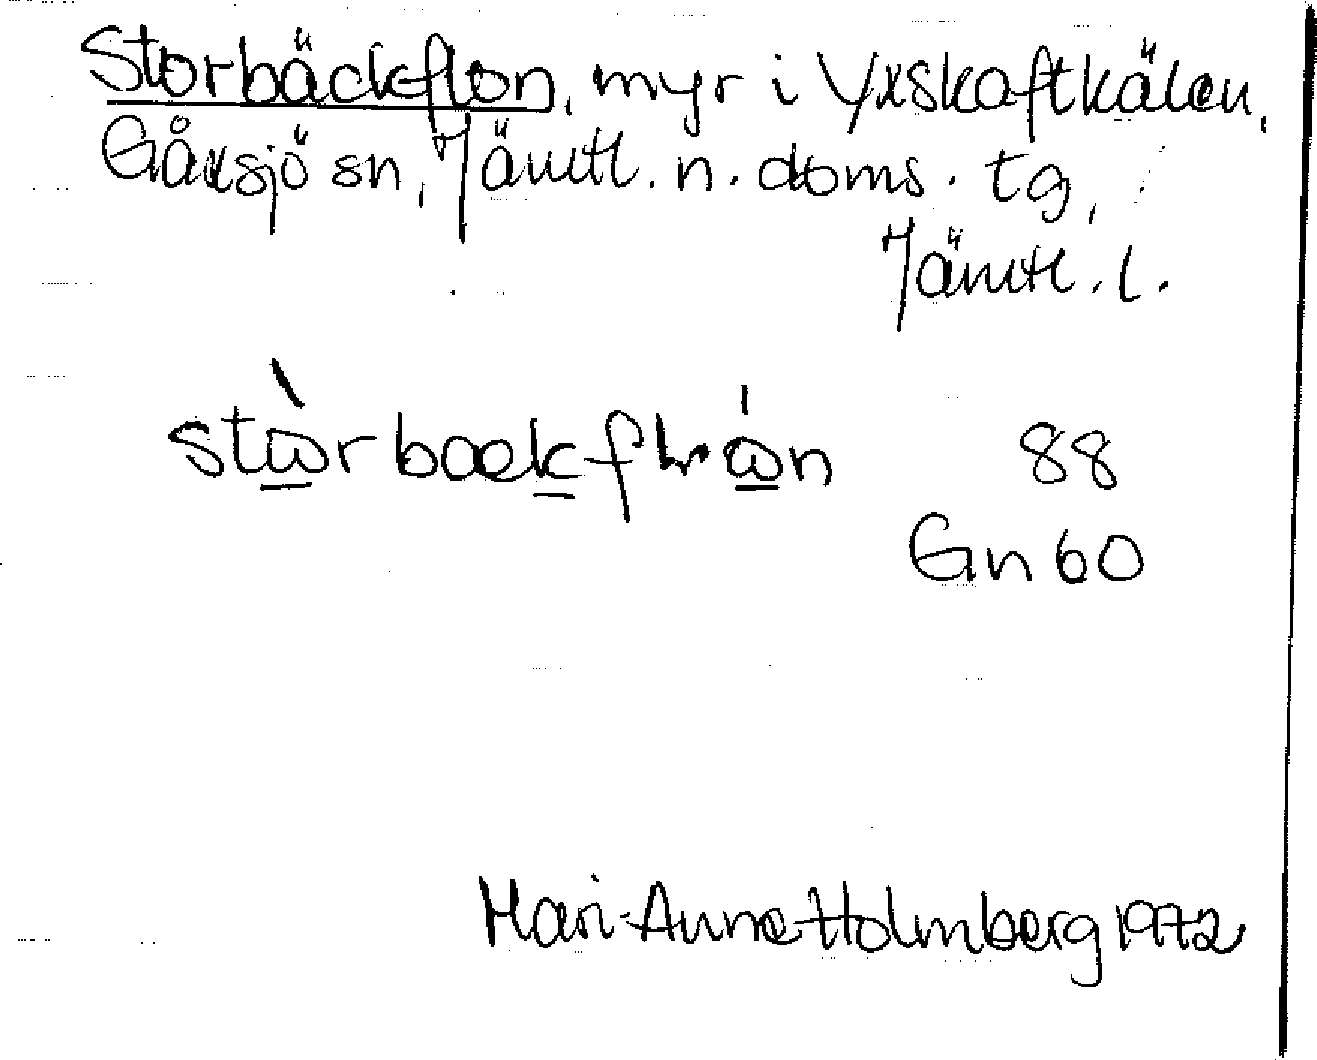 Storbäckflon, myr i Yxskaftkälen,
Gåxsjö sn, Jämtl. n. doms. tg,
Jämtl. l.
88
Gn 60
Mari-Anne Holmberg 1972